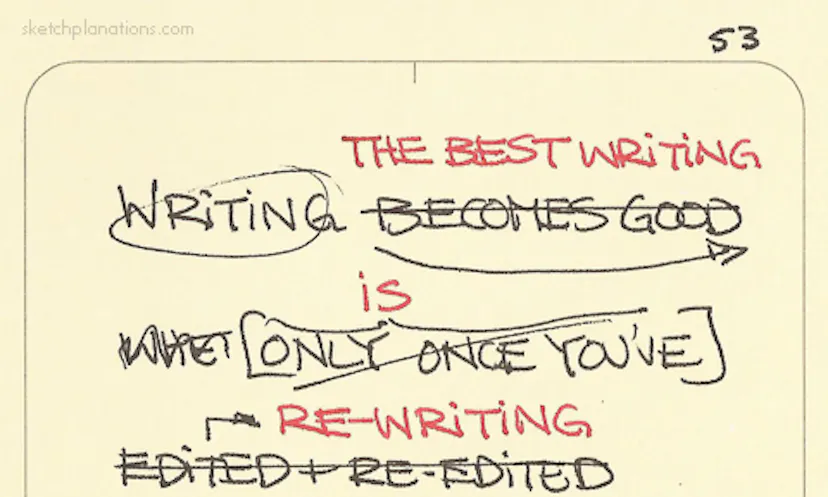 sketchplanations.com
53
THE BEST WRITING
WRITING BECOMES GOOD
IS
WHAT [ONLY ONCE YOU'VE]
RE-WRITING
EDITED + RE-EDITED